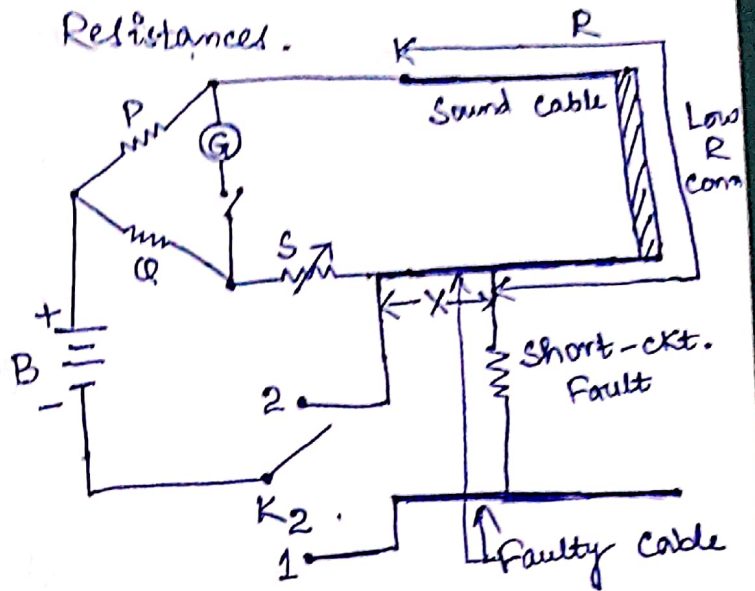 Resistances.
K
R
Sound Cable
Low
R
Conn
P
G
Q
S
X
+
B
-
2
Short-ckt.
Fault
K2.
1
Faulty Cable